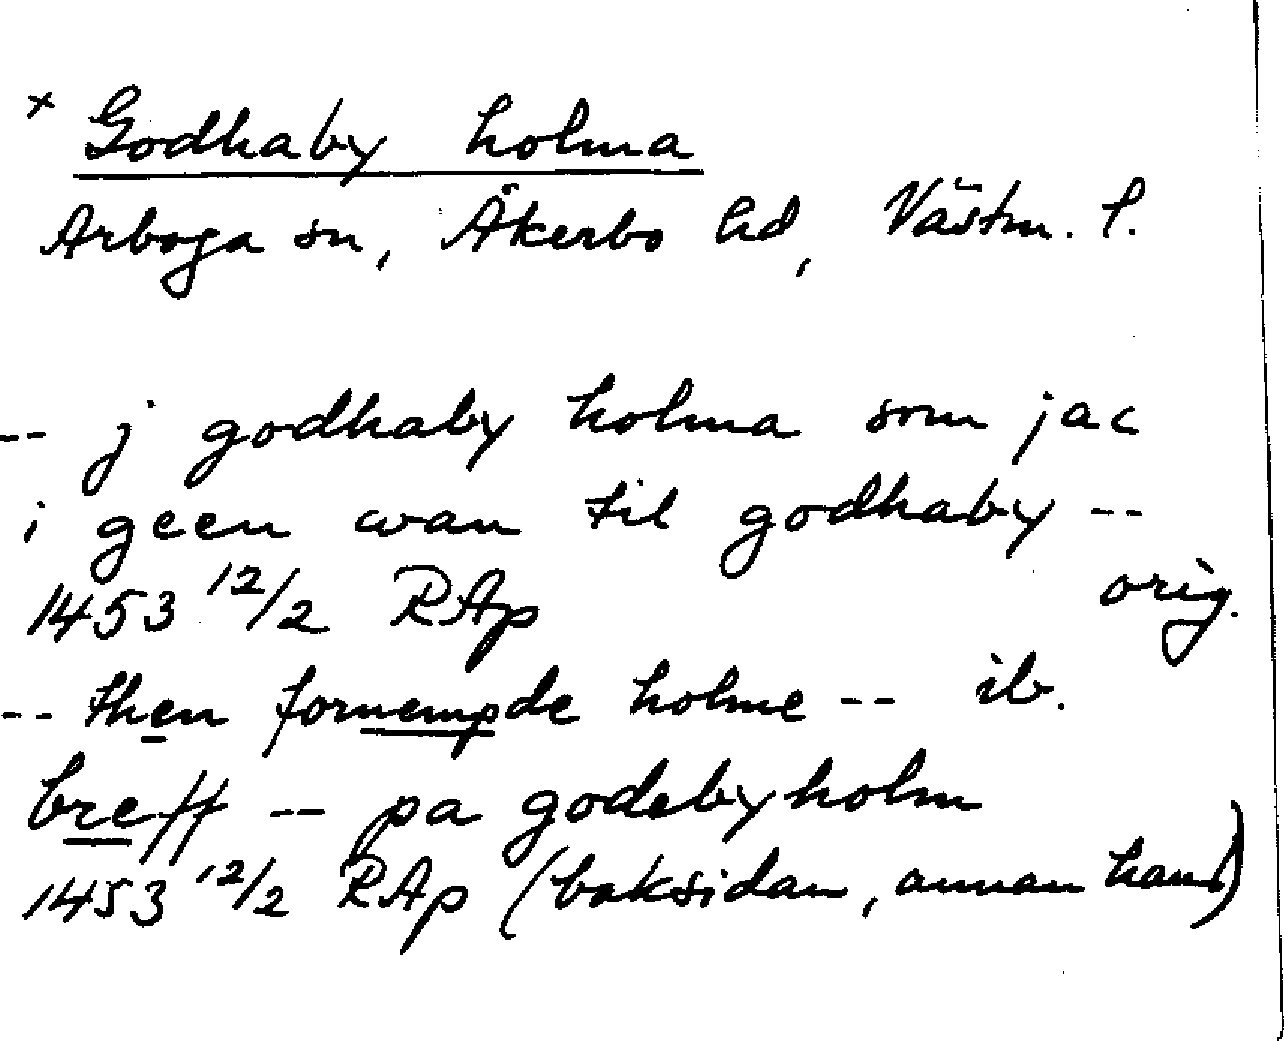 × Godhaby holma
Arboga sn, Åkerbo hd, Västm. l.
-- j godhaby holma som jac
i geen wan til godhaby --
1453 12/2 RAp orig.
-- then fornempde holme -- ib.
breff -- pa godebyholm
1453 12/2 RAp (baksidan, annan hand)